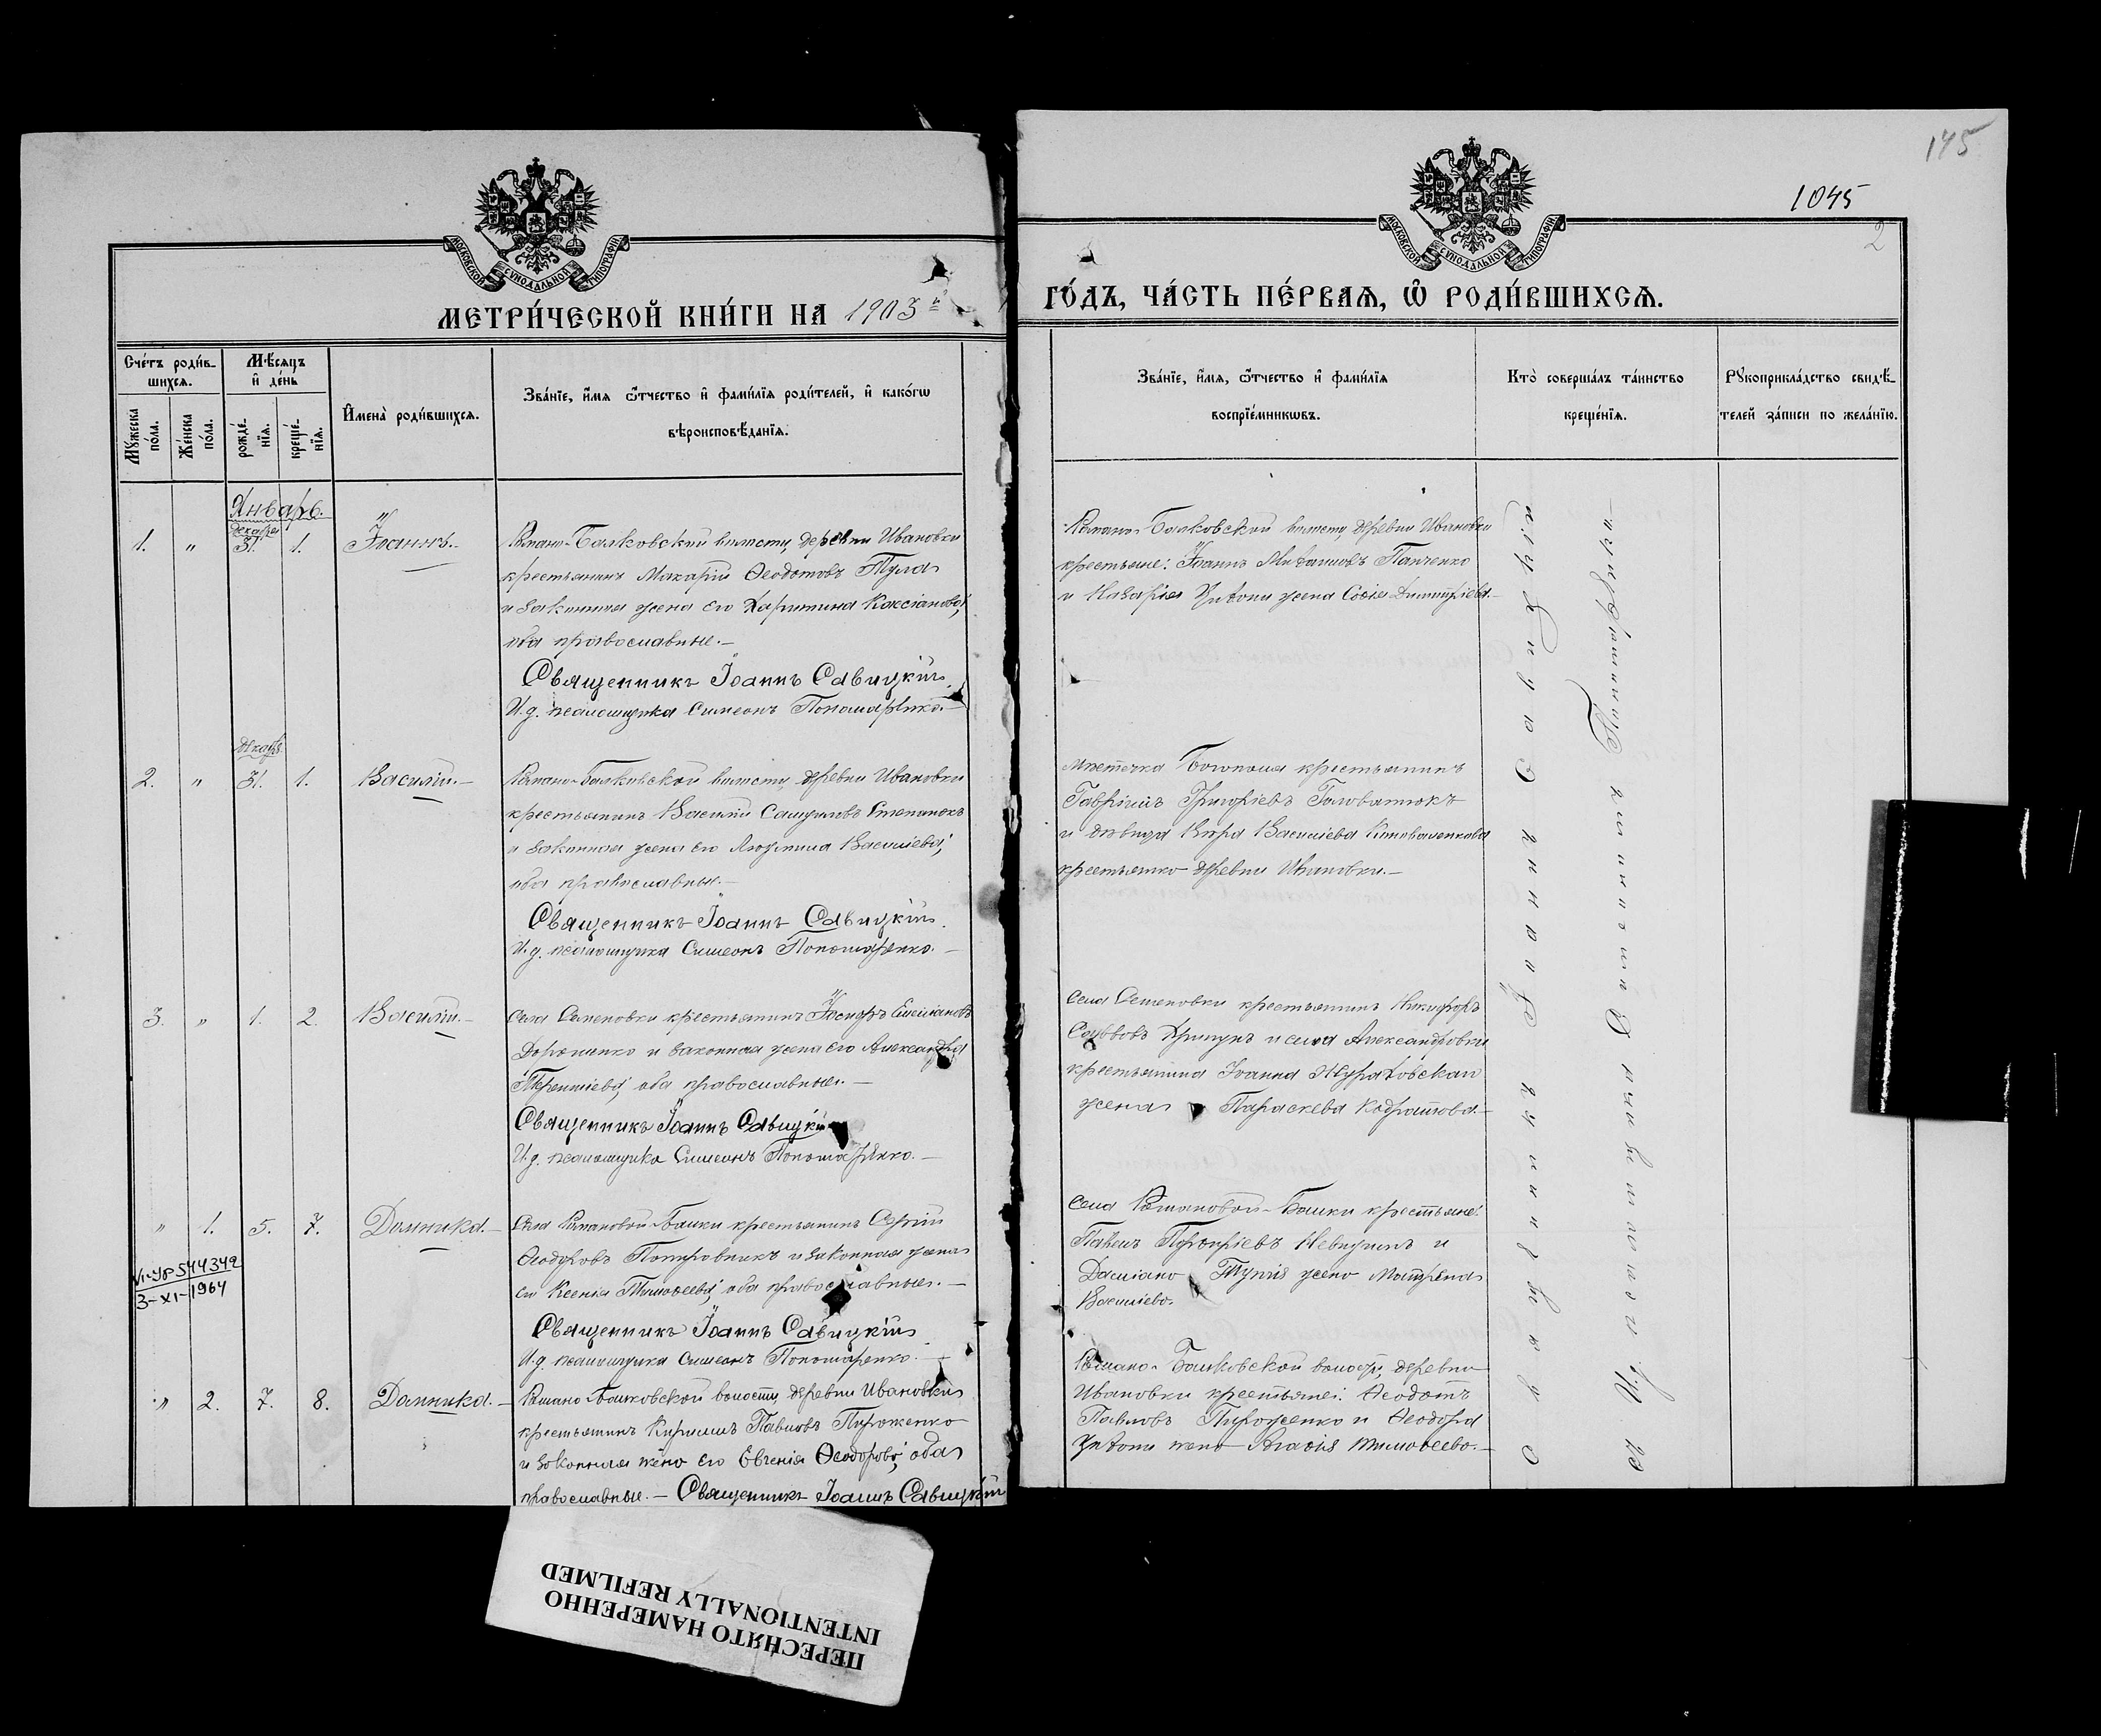 145
1045
2
МОСКОВСКОЙ СѴНОДАЛЬНОЙ ТИПОГРАФІИ
МОСКОВСКОЙ СѴНОДАЛЬНОЙ ТИПОГРАФІИ
МЕТРИ́ЧЕСКОЙ КНИ́ГИ НА 1903й
ГО́ДЪ, ЧА́СТЬ ПЕ́РВАЯ, Ѡ РОДИ́ВШИХСЯ.
Сче́тъ роди́в-
шихся.
Мꙋжеска по́ла.
Же́нска по́ла.
Мѣ́сяцъ
и де́нь
рожде́нїя.
креще́нїя.
Имена̀ роди́вшихся.
Зва́нїе, и́мя ѻ́тчество и фами́лїя роди́телей, и како́гѡ
вѣроисповѣ́данїя.
Зва́нїе, и́мя, ѻ́тчество и фами́лїя
воспрїе́мникѡвъ.
Кто̀ соверша́лъ та́инство
креще́нїя.
Рꙋкоприкла́дство свидѣ́-
телей за́писи по жела́нїю.
Январь.
декабря
1. " 31. 1. Іоаннъ.
Романо-Балковской волости, деревни Ивановки
крестьянинъ Макарій Ѳеодотовъ Тула
и законная жена его Харитина Кассіанова,
оба православные.—
Священникъ Іоаннъ Савицкій
И.д. псаломщика Симеонъ Пономаренко.—
Романо-Балковской волости, деревни Ивановки
крестьяне: Іоаннъ Панченко
и Назарія жена Софія Димитріева.—
декабр.
2. " 31. 1. Василій.—
Романо-Балковской волости, деревни Ивановки
крестьянинъ Василій Степанокъ
и законная жена его Людмила Васильева,
оба православные.—
Священникъ Іоаннъ Савицкій.
И.д. псаломщика Симеонъ Пономаренко.—
Мѣстечка крестьянинъ
Гавріилъ Григоріевъ Головатюкъ
и дѣвица Вѣра Васильева Коноваленкова
крестьянка деревни Ивановки.—
3. " 1. 2. Василій.—
Села Семеновки крестьянинъ Іосифъ Емеліановъ
Дорошенко и законная жена его Александра
Терентіева, оба православные.—
Священникъ Іоаннъ Савицкій
И.д. псаломщика Симеонъ Пономаренко.—
Села Семеновки крестьянинъ Никифоръ
и села Александровки
крестьянина Іоанна Жураховскаго
жена Параскева Кодратова.—
" 1. 5. 7. Домника.—
544349
3-XI-1964
Села Романовой-Балки крестьянинъ Сергій
Ѳеодоровъ и законная жена
его Ксенія Тимоѳеева, оба православные.—
Священникъ Іоаннъ Савицкій
И.д. псаломщика Симеонъ Пономаренко.—
Села Романовой-Балки крестьяне:
Павелъ и
Даміана жена Матрена
Васильева.
" 2. 7. 8. Домника.—
Романо-Балковской волости, деревни Ивановки
крестьянинъ Кириллъ Павловъ Пироженко
и законная жена его Евгенія Ѳеодорова, оба
православные.— Священникъ Іоаннъ Савицкій
Романо-Балковской волости, деревни
Ивановки крестьяне: Ѳеодотъ
Павловъ Пироженко и Ѳеодора
жена Агафія Тимоѳеева.—
Священникъ Іоаннъ Савицкій
съ И.д. псаломщика Симеономъ Пономаренко.—
ПЕРЕСНЯТО НАМЕРЕННО
INTENTIONALLY REFILMED